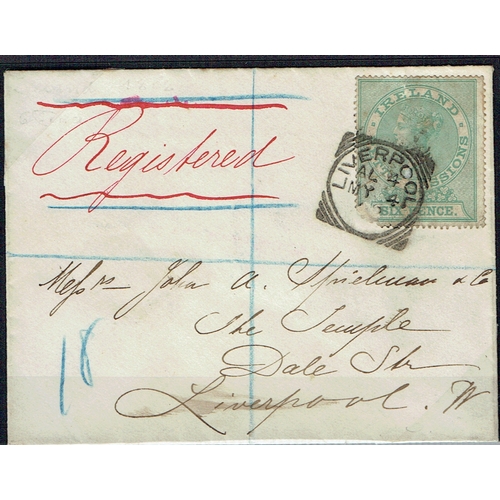 Registered
IRELAND
PETTY SESSIONS
SIX PENCE.
LIVERPOOL
AL 4
MY 4
Messrs John A. Spielman & Co
The Temple
Dale Str
Liverpool. W
18